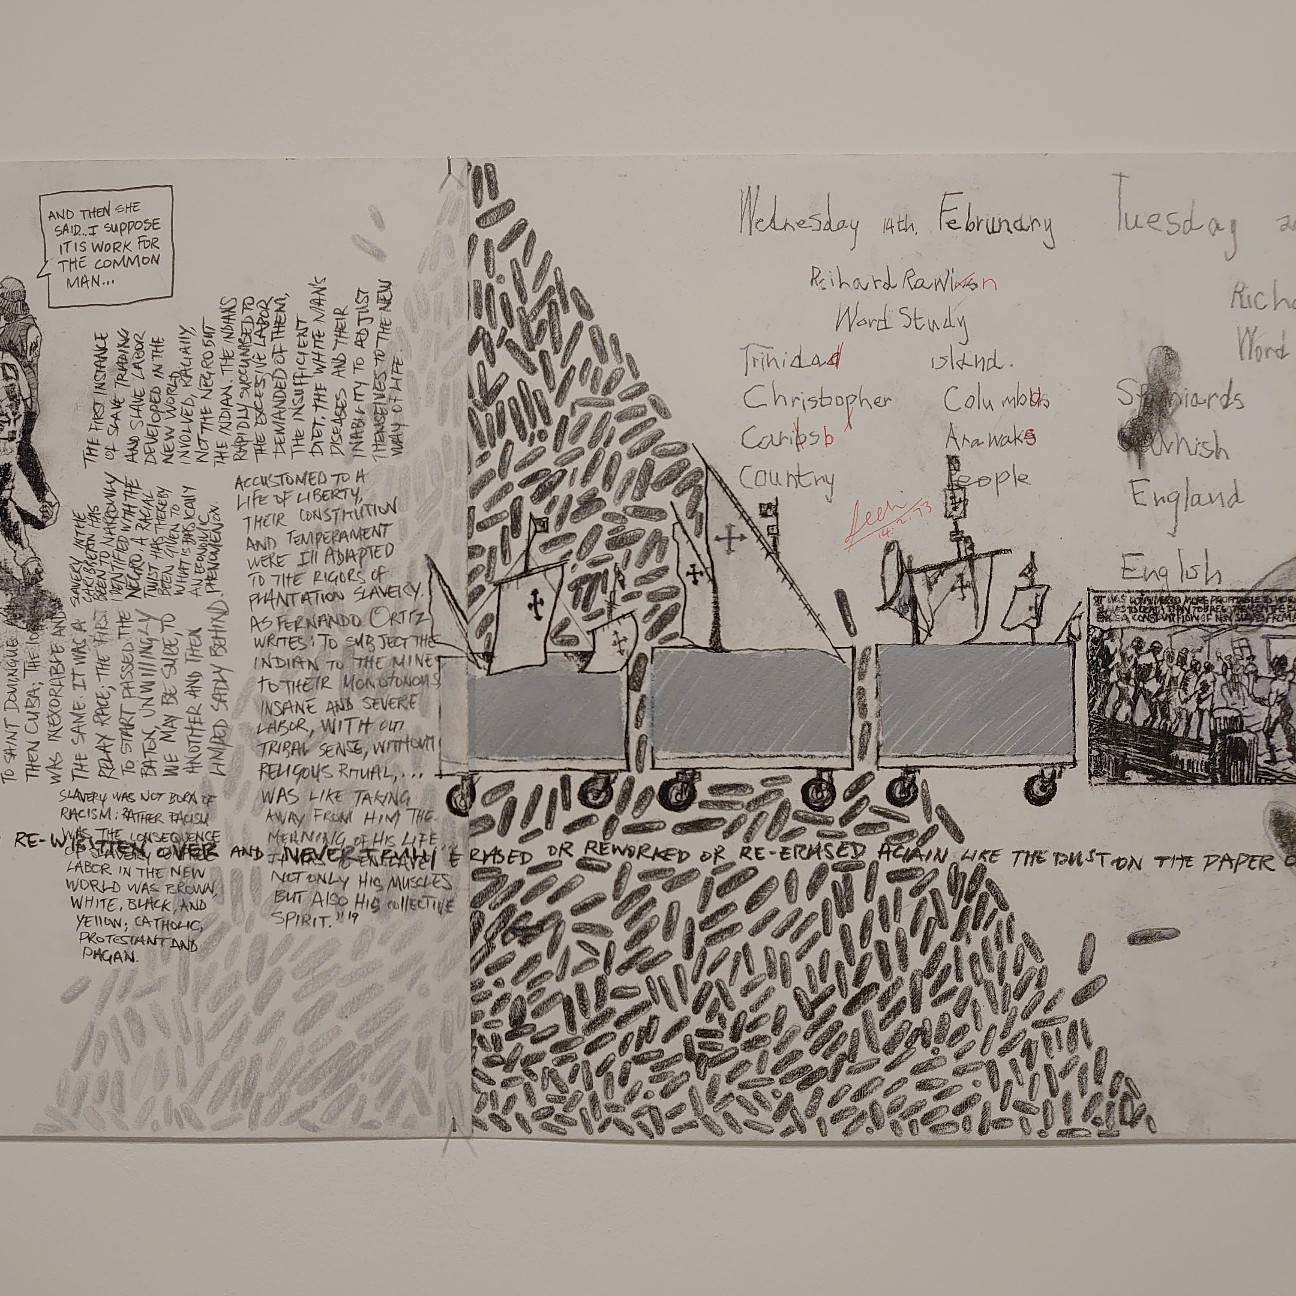 AND THEN SHE
SAID...I SUPPOSE
IT IS WORK FOR
THE COMMON
MAN...
THE FIRST INSTANCE
OF SLAVE TRADING
AND SLAVE LABOR
DEVELOPED IN THE
NEW WORLD
INVOLVED, RACIALLY,
NOT THE NEGRO BUT
THE INDIAN. THE INDIANS
RAPIDLY SUCCUMBED TO
THE EXCESSIVE LABOR
DEMANDED OF THEM,
THE INSUFFICIENT
DIET, THE WHITE MAN'S
DISEASES AND THEIR
INABILITY TO ADJUST
THEMSELVES TO THE NEW
WAY OF LIFE.
SLAVERY IN THE
CARIBBEAN HAS
BEEN TO NARROWLY
IDENTIFIED WITH THE
NEGRO. A RACIAL
TWIST HAS THEREBY
BEEN GIVEN TO
WHAT IS BASICALLY
A ECONOMIC
PHENOMENON.
ACCUSTOMED TO A
LIFE OF LIBERTY,
THEIR CONSTITUTION
AND TEMPERAMENT
WERE Ill ADAPTED
TO THE RIGORS OF
PLANTATION SLAVERY.
AS FERNANDO ORTIZ
WRITES: TO SUBJECT THE
INDIAN TO THE MINE
TO THEIR MONOTONOUS
INSANE AND SEVERE
LABOR, WITH OUT
TRIBAL SENSE, WITHOUT
RELIGOUS RITUAL,...
WAS LIKE TAKING
AWAY FROM HIM THE
MEANING OF HIS LIFE
NOT ONLY HIS MUSCLES
BUT ALSO HIS COllECTIVE
SPIRIT."19
TO SAINT DOMINGUE
THEN CUBA, THE
WAS INEXORABLE AND
THE SAME. IT WAS A
RELAY RACE, THE FIRST
TO START PASSED THE
BATON, UNWILLINGLY
WE MAY BE SURE, TO
ANOTHER AND THEN
LIMPED SADLY BEHIND
SLAVERY WAS NOT BORN OF
RACISM: RATHER RACISM
WAS THE CONSEQUENCE
OF SLAVERY
LABOR IN THE NEW
WORLD WAS BROWN
WHITE, BLACK, AND
YEllOW; CATHOLIC,
PROTESTANT AND
PAGAN.
RE-WRITTEN OVER AND NEVER ERASED OR REWORKED OR RE-ERASED AGAIN LIKE THE DUST ON THE PAPER
Wednesday 14th. Februnary
Reihard Rawlison
Word Study
Trinidad island.
Christopher Columbus
Caribsb Arawaks
Country people
14.2.73
Tuesday
Richa
Word
Spaniards
England
English
IT WAS CONSIDERED MORE PROFITABLE TO WORK